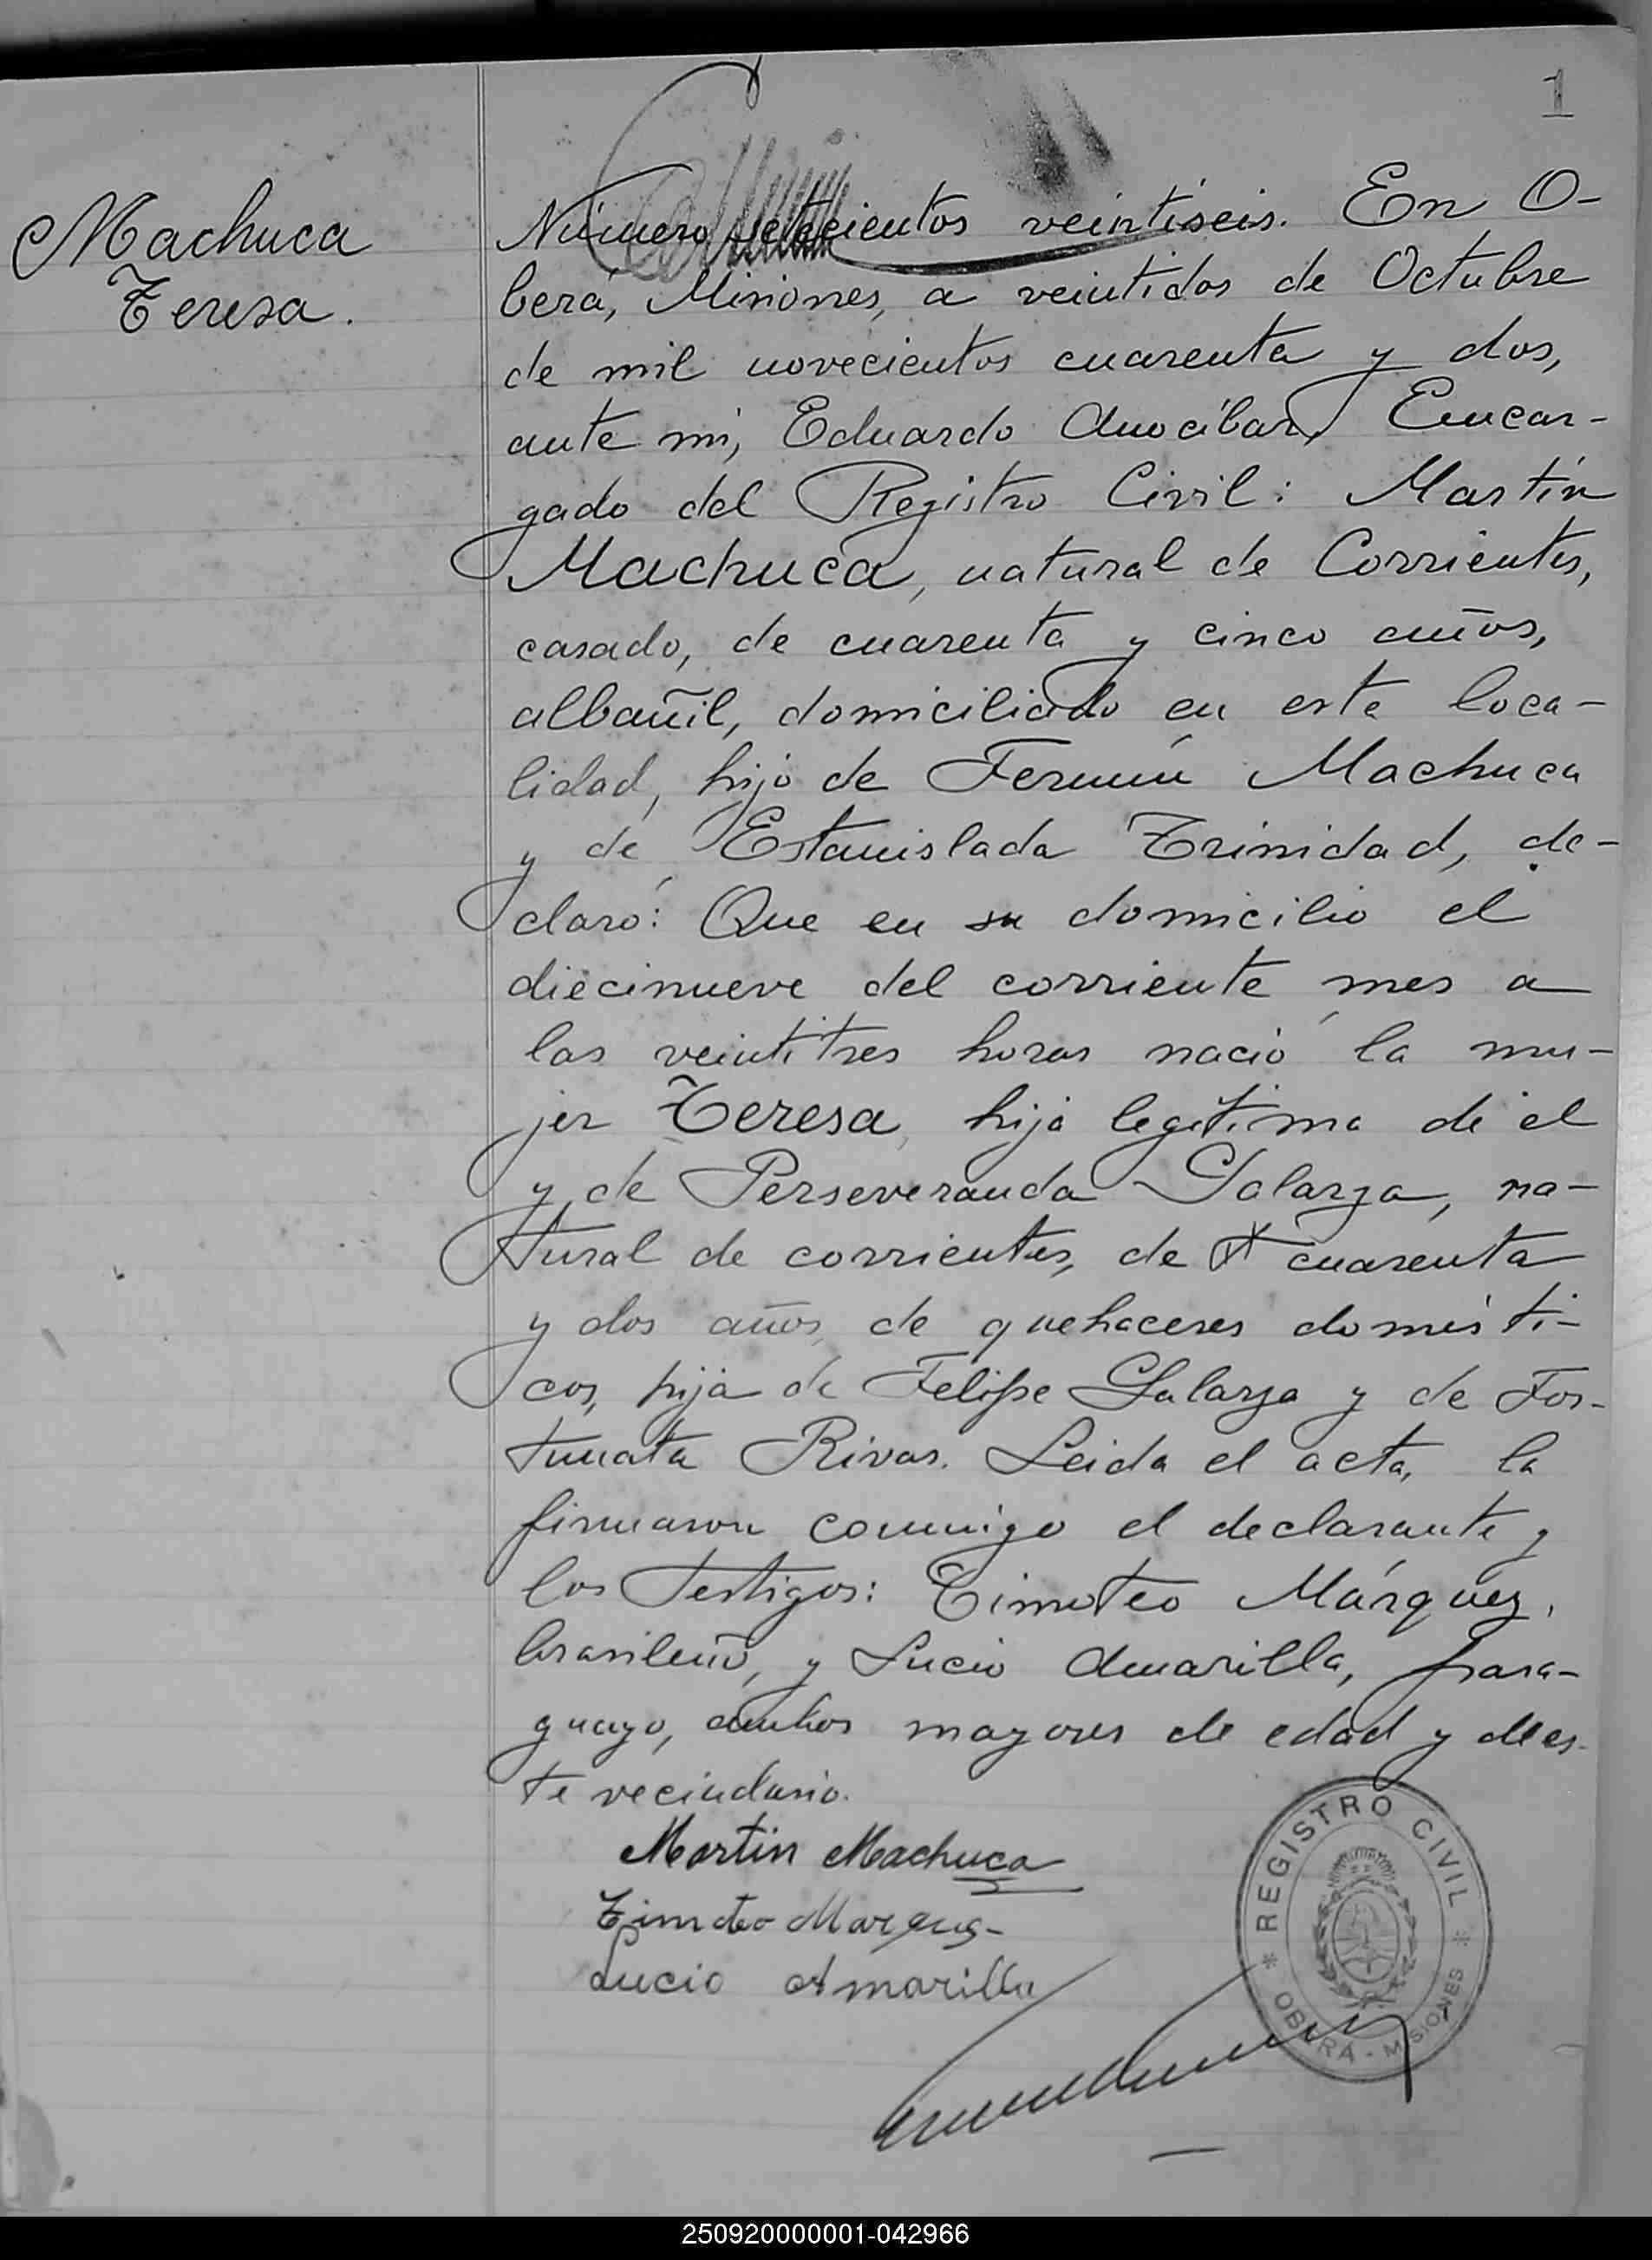 1
Machuca
Teresa.
Número setecientos veintiseis. En O-
berá, Misiones, a veintidos de Octubre
de mil novecientos cuarenta y dos,
ante mi, Eduardo Amocibar, Encar-
gado del Registro Civil: Martín
Machuca, natural de Corrientes,
casado, de cuarenta y cinco años,
albañil, domiciliado en esta loca-
lidad, hijo de Fermín Machuca
y de Estanislada Trinidad, de-
claró: Que en su domicilio el
diecinueve del corriente mes a
las veintitres horas nació la mu-
jer Teresa, hija legítima de él
y de Perseveranda Galarza, na-
tural de corrientes, de cuarenta
y dos años, de quehaceres domésti-
cos, hija de Felipe Galarza y de For-
tunata Rivas. Leida el acta, la
firmaron conmigo el declarante y
los testigos: Timoteo Márquez,
brasileño, y Lucio Amarilla, para-
guayo, ambos mayores de edad y de es-
te vecindario.
Martin Machuca
Timoteo Marques
Lucio Amarilla
REGISTRO CIVIL
OBERÁ - MISIONES
250920000001-042966